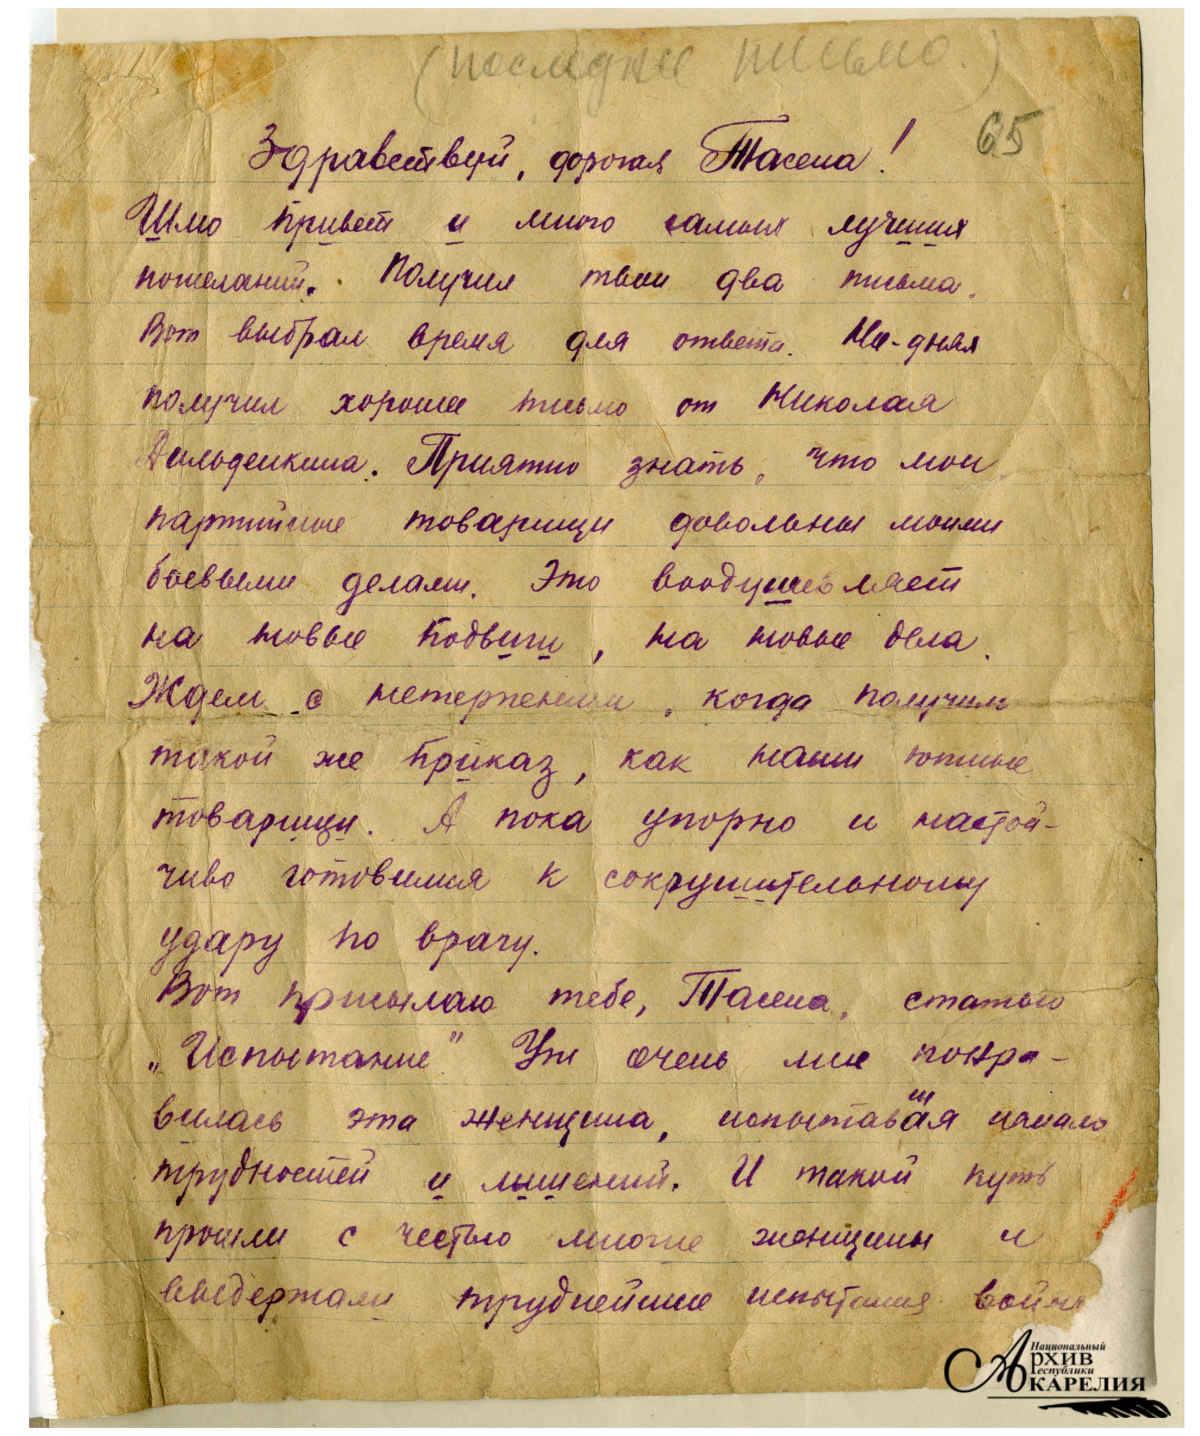 (последнее письмо.)
65
Здравствуй, дорогая Тасена!
Шлю привет и много самых лучших
пожеланий. Получил твои два письма.
Вот выбрал время для ответа. На-днях
получил хорошее письмо от Николая
Дильденкина. Приятно знать, что мои
партийные товарищи довольны моими
боевыми делами. Это воодушевляет
на новые подвиги, на новые дела.
Ждем с нетерпением, когда получим
такой же приказ, как наши южные
товарищи. А пока упорно и настой-
чиво готовимся к сокрушительному
удару по врагу.
Вот присылаю тебе, Тасена, статью
„Испытание" Уж очень мне понра-
вилась эта женщина, испытавшая немало
трудностей и лишений. И такой путь
прошли с честью многие женщины и
выдержали труднейшие испытания войны
Национальный
Архив
Республики
Карелия